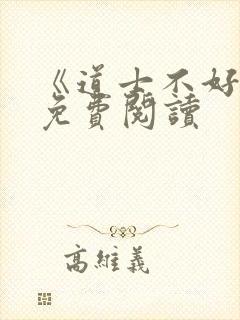 《道士不好
免費閱讀
高維義